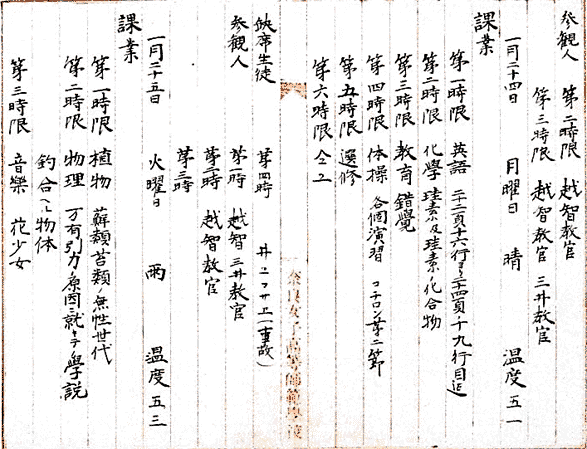 参観人 第二時限 越智教官
第三時限 越智教官 三井教官
一月二十四日 月曜日 晴 温度 五一
課業
第一時限 英語 二十二頁十六行ヨリ二十四頁ノ十九行目迄
第二時限 化學 珪素及珪素ノ化合物
第三時限 教育 錯覺
第四時限 体操 各個演習 コチロン第二節
第五時限 選修
第六時限 仝上
缺席生徒 第四時 井上フサエ(事故)
参観人 第一時 越智 三井教官
第二時 越智教官
第三時
一月二十五日 火曜日 雨 温度 五三
課業
第一時限 植物 蘚類苔類ノ無性世代
第二時限 物理 万有引力ノ原因ニ就キテノ學説
釣合ヘル物体
第三時限 音樂 花少女
奈良女子高等師範學校